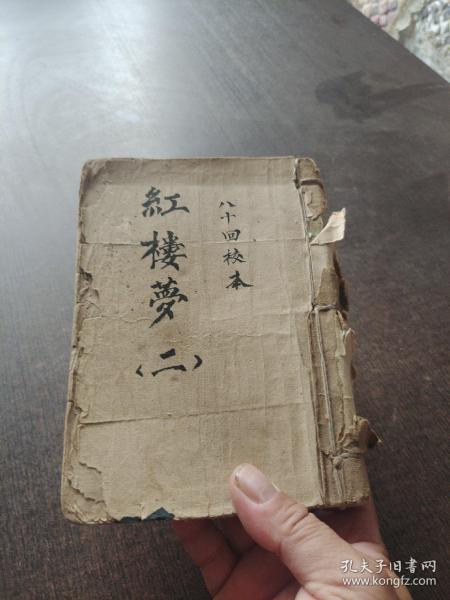 八十回校本
紅樓夢
〈二〉
孔夫子旧书网
www.kongfz.com